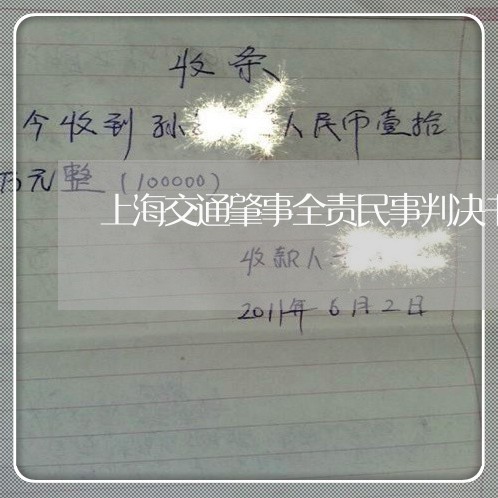 收条
今收到孙 人民币壹拾
万元整（100000）
上海交通肇事全责民事判决书
收款人
2011年6月2日